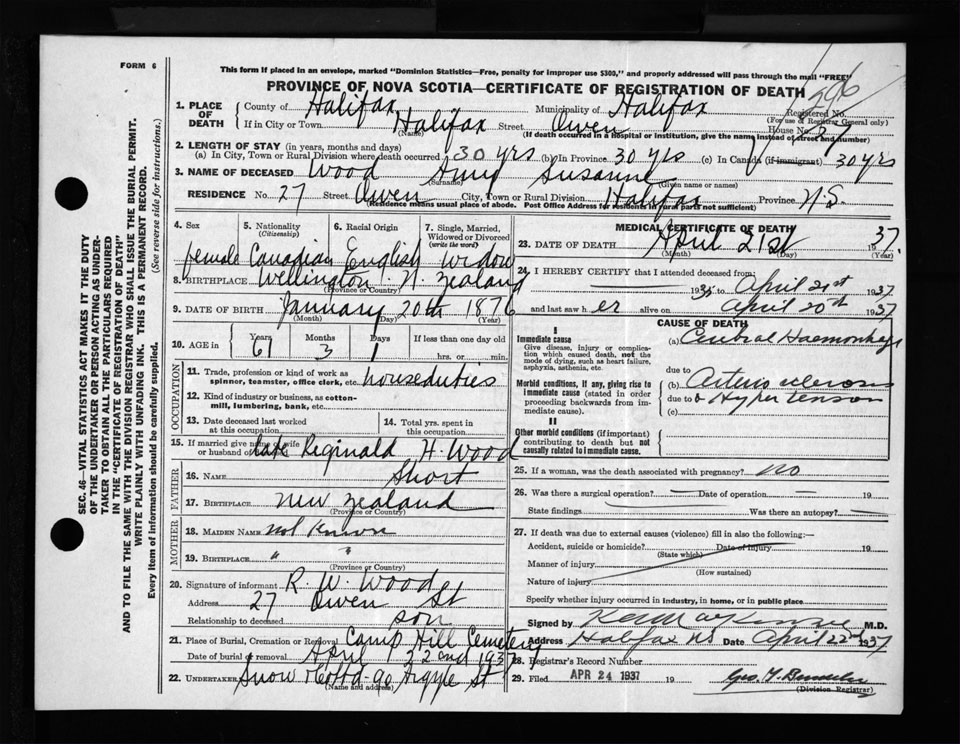 FORM 6
This form if placed in an envelope, marked "Dominion Statistics—Free, penalty for improper use $300," and properly addressed will pass through the mail "FREE"
PROVINCE OF NOVA SCOTIA—CERTIFICATE OF REGISTRATION OF DEATH
296
Registered No.
(For use of Registrar General only)
1. PLACE OF DEATH
County of Halifax Municipality of Halifax
If in City or Town Halifax Street Owen House No. 27
(Name) (If death occurred in a Hospital or Institution, give the name instead of street and number)
2. LENGTH OF STAY (in years, months and days)
(a) In City, Town or Rural Division where death occurred 30 yrs (b) In Province 30 yrs (c) In Canada (if immigrant) 30 yrs
3. NAME OF DECEASED Wood Amy Susanne
(Surname) (Given name or names)
RESIDENCE No. 27 Street Owen City, Town or Rural Division Halifax Province N.S.
(Residence means usual place of abode. Post Office Address for residents in rural parts not sufficient)
4. Sex
female
5. Nationality
(Citizenship)
Canadian
6. Racial Origin
English
7. Single, Married, Widowed or Divorced
(write the word)
widow
8. BIRTHPLACE Wellington N. Zealand
(Province or Country)
9. DATE OF BIRTH January 20th 1876
(Month) (Day) (Year)
10. AGE in
Years Months Days If less than one day old
61 3 1 hrs. or min.
OCCUPATION
11. Trade, profession or kind of work as spinner, teamster, office clerk, etc. houseduties
12. Kind of industry or business, as cotton-mill, lumbering, bank, etc.
13. Date deceased last worked at this occupation
14. Total yrs. spent in this occupation
15. If married give name of wife or husband of late Reginald H. Wood
FATHER
16. Name Short
17. Birthplace New Zealand
(Province or Country)
MOTHER
18. Maiden Name not known
19. Birthplace " "
(Province or Country)
20. Signature of informant R. W. Wood
Address 27 Owen St
Relationship to deceased son
21. Place of Burial, Cremation or Removal Camp Hill Cemetery
Date of burial or removal April 22nd 1937
22. UNDERTAKER Snow & Co Ltd 90 Argyle St
(Name and address)
MEDICAL CERTIFICATE OF DEATH
23. DATE OF DEATH April 21st 1937.
(Month) (Day) (Year)
24. I HEREBY CERTIFY that I attended deceased from:
193 to April 21st 1937
and last saw her alive on April 20th 1937
CAUSE OF DEATH
I
Immediate cause
Give disease, injury or complication which caused death, not the mode of dying, such as heart failure, asphyxia, asthenia, etc.
(a) Cerebral Haemorrhage
due to
Morbid conditions, if any, giving rise to immediate cause (stated in order proceeding backwards from immediate cause).
(b) Arterio sclerosis
due to & Hypertension
(c)
II
Other morbid conditions (if important) contributing to death but not causally related to immediate cause.
25. If a woman, was the death associated with pregnancy? no
26. Was there a surgical operation? — Date of operation — 19
State findings — Was there an autopsy? —
27. If death was due to external causes (violence) fill in also the following:—
Accident, suicide or homicide? Date of injury 19
(State which)
Manner of injury
(How sustained)
Nature of injury
Specify whether injury occurred in industry, in home, or in public place
Signed by MacKenzie M.D.
Address Halifax NS Date April 22nd 1937
28. Registrar's Record Number
29. Filed APR 24 1937 19
(Division Registrar)
SEC. 46—VITAL STATISTICS ACT MAKES IT THE DUTY
OF THE UNDERTAKER OR PERSON ACTING AS UNDERTAKER TO OBTAIN ALL THE PARTICULARS REQUIRED
IN THE "CERTIFICATE OF REGISTRATION OF DEATH"
AND TO FILE THE SAME WITH THE DIVISION REGISTRAR WHO SHALL ISSUE THE BURIAL PERMIT.
WRITE PLAINLY WITH UNFADING INK. THIS IS A PERMANENT RECORD.
Every item of information should be carefully supplied. (See reverse side for instructions.)